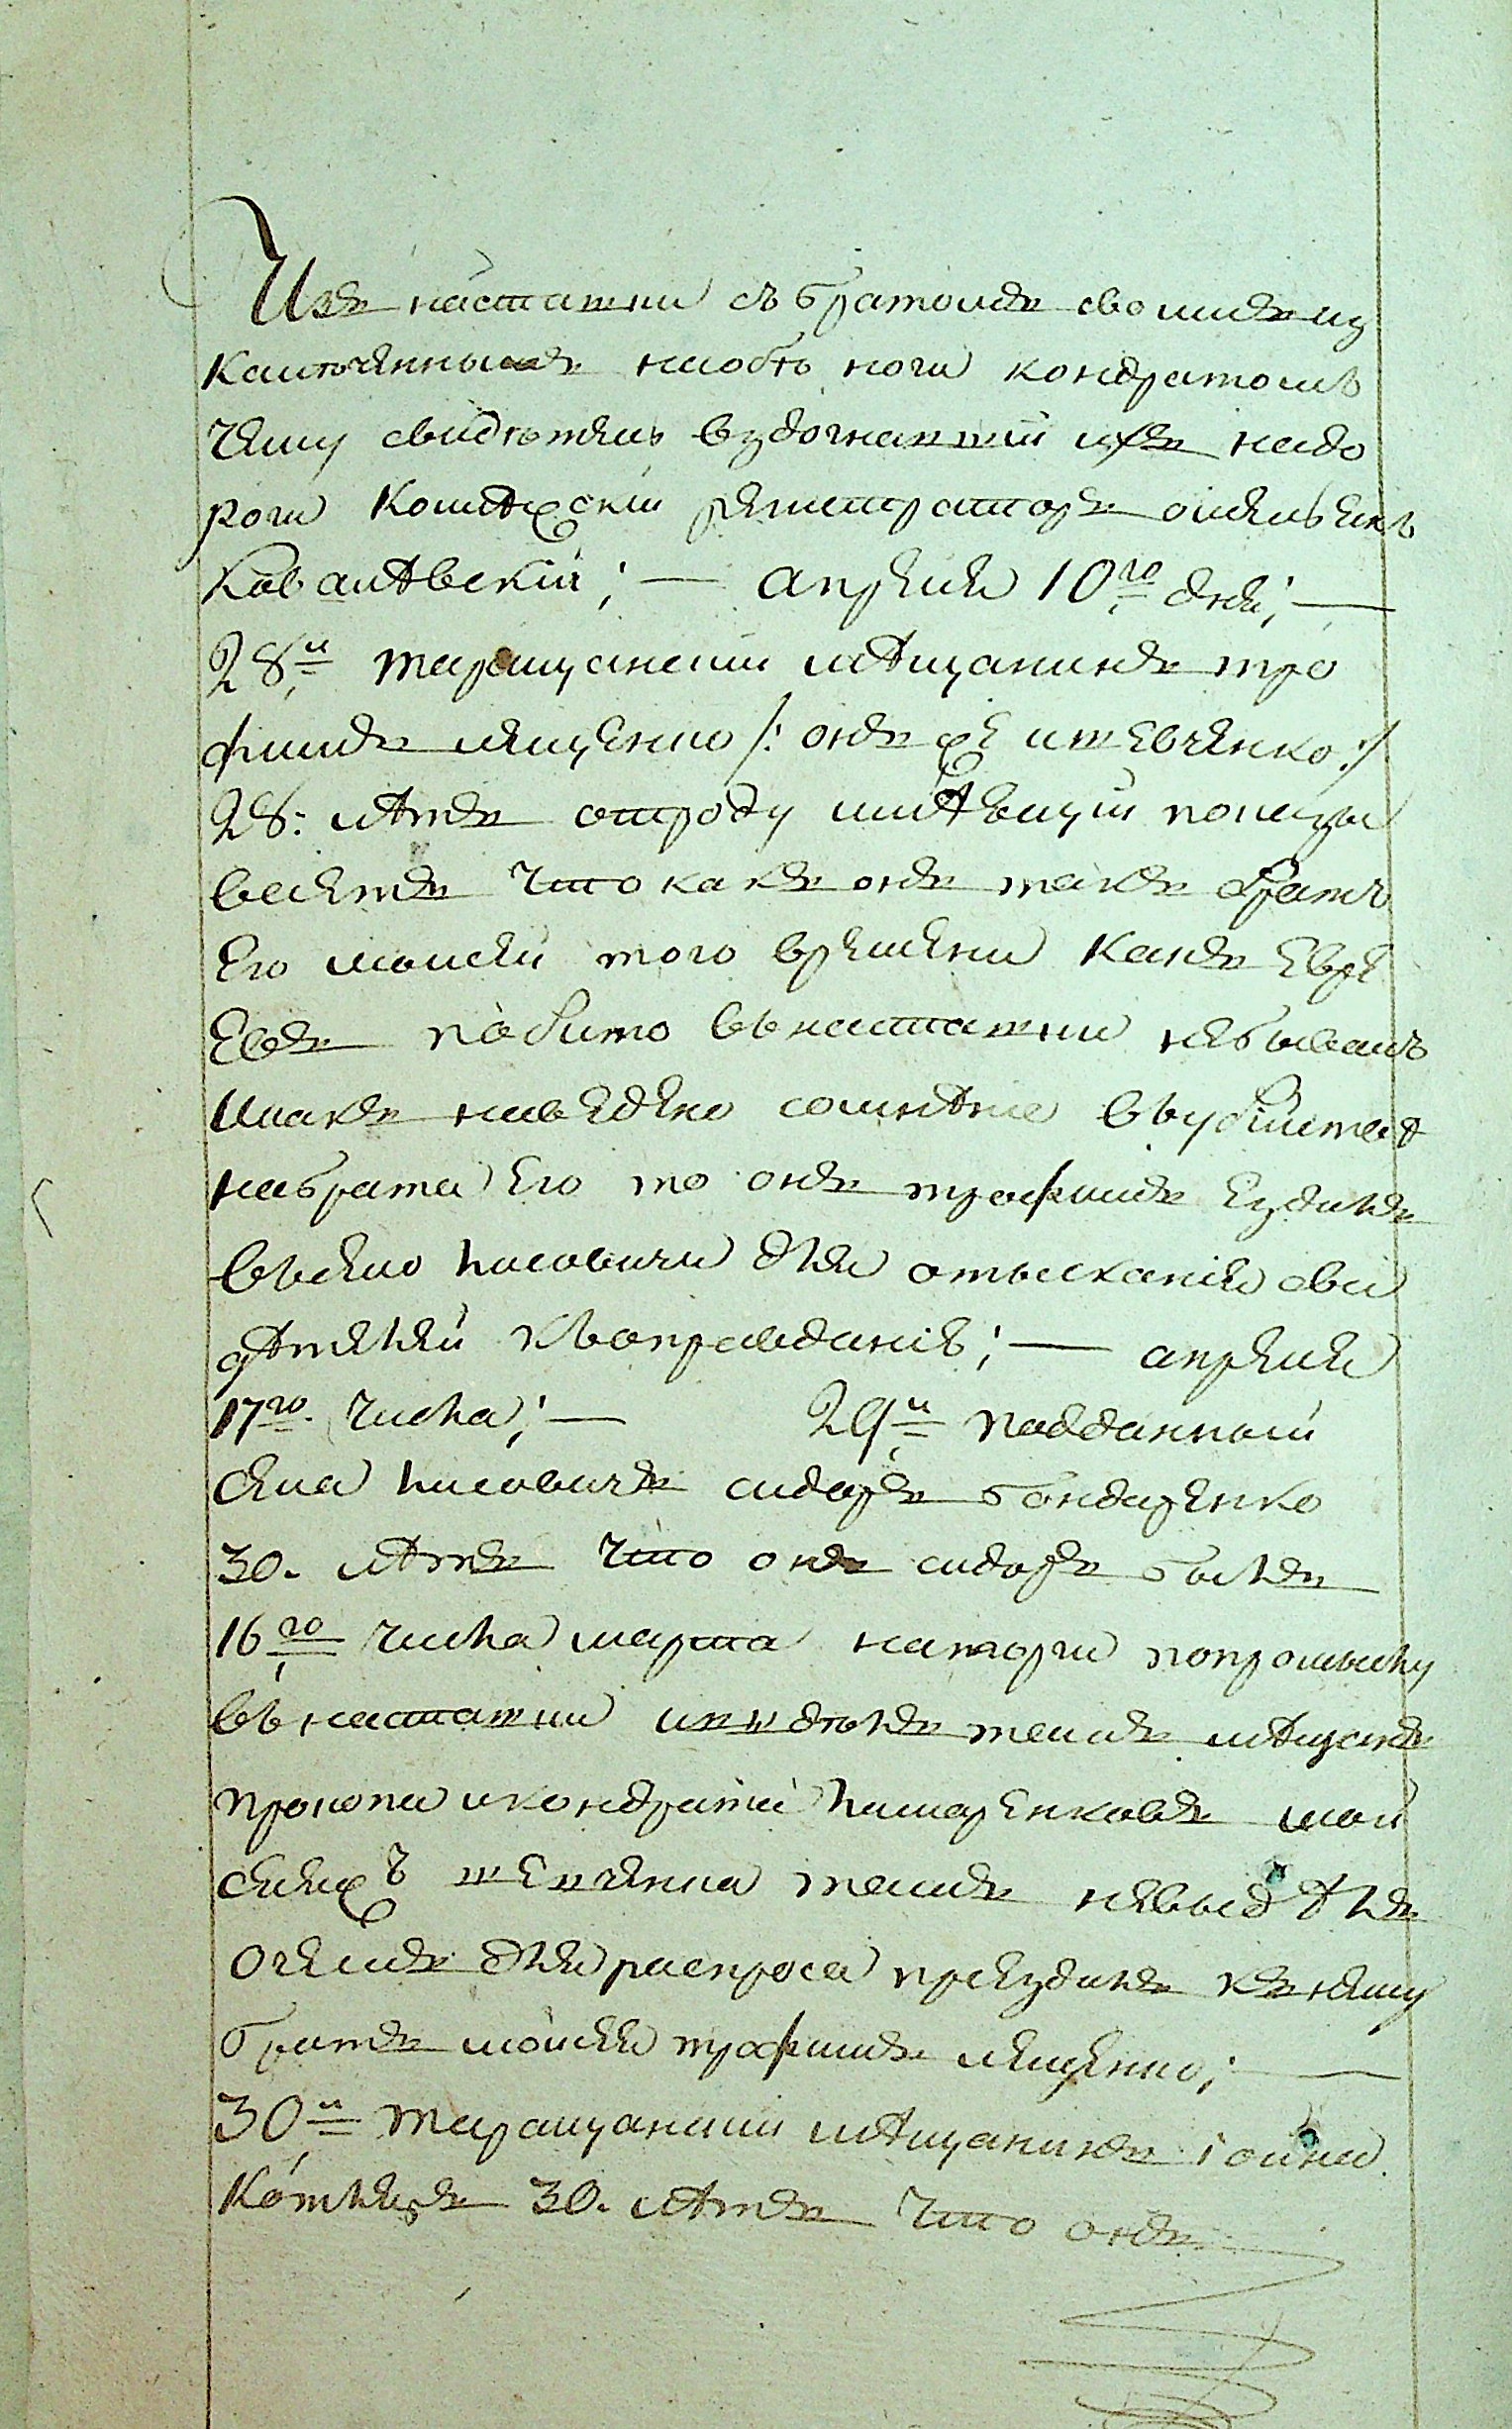 Изъ кастатни съ братомъ своимъ из
калѣченнымъ наобѣ ноги кондратомъ
чему свидѣтель вздогнавший ихъ надо
роги Колежскій регистраторъ
Ковалѣвскій; — апреля 10го дня; —
28й таращанский мѣщанинъ тро
фимъ лященко /: онъ же и шевченко :/
28: лѣтъ отроду имѣющий показы
ваетъ что какъ онъ такъ братъ
Его моисей того времени какъ Евре
Евъ побито въ кастатни небывалъ
и какъ наведено сомнѣние въ убийствѣ
на брата Его то онъ трофимъ Ездилъ
въ село лисовичи для отыскания сви
дѣтелей къ оправданію; — апреля
17го. числа; — 29й подданный
села лисовичъ сидоръ бондаренко
30. лѣтъ что онъ сидоръ былъ
16го числа марта на торги по промыслу
въ кастатни и видѣлъ тамъ мѣщанъ
прокопа и кондратія лимаренковъ мой
сея жъ шевченка тамъ невидѣлъ
о чемъ для распроса преездилъ къ нему
братъ мойсея трофимъ лященко; —
30й таращанский мѣщанинъ
Котляръ 30. лѣтъ что онъ